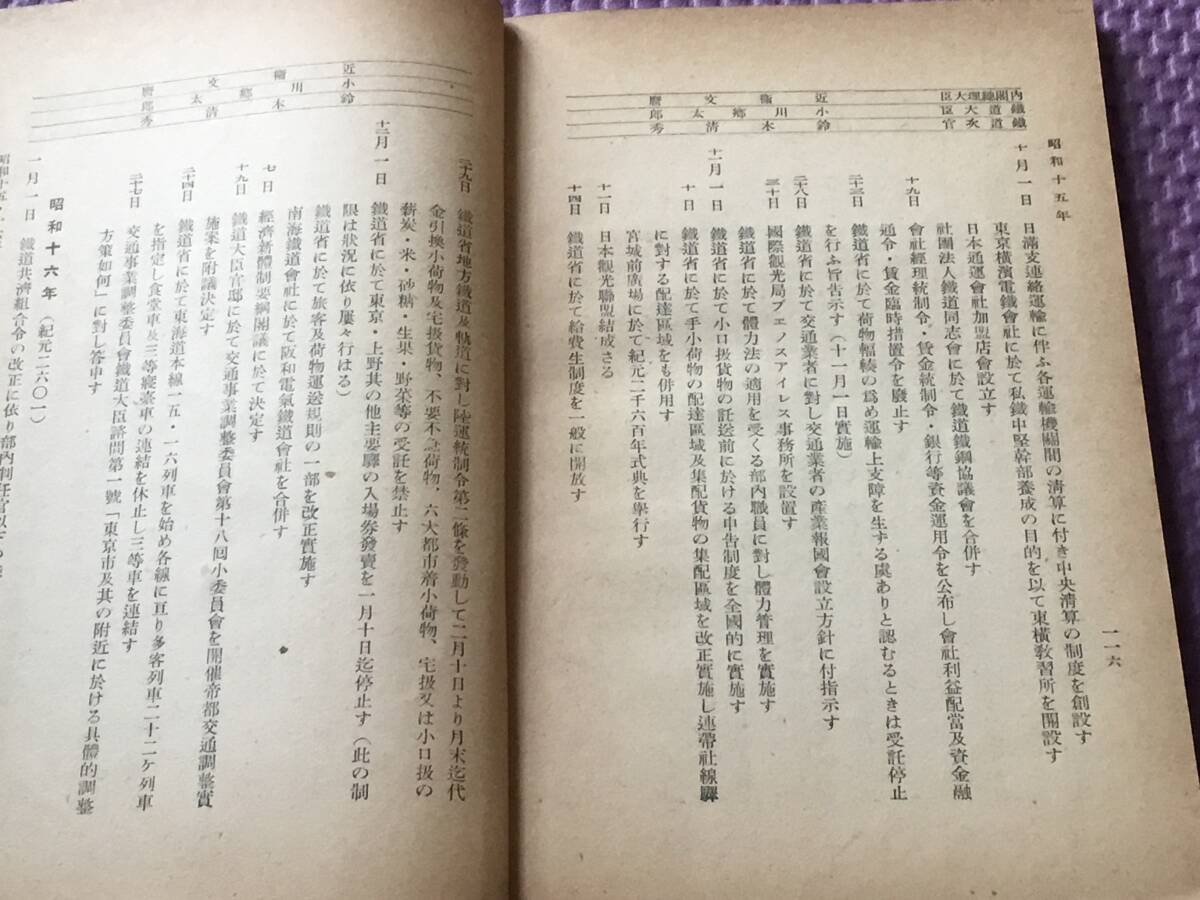 一一六
內閣總理大臣 近衞文麿
鐵道大臣 小川鄉太郎
鐵道次官 鈴木清秀
昭和十五年
十月一日 日滿支連絡運輸に伴ふ各運輸機關間の淸算に付き中央淸算の制度を創設す
東京橫濱電鐵會社に於て私鐵中堅幹部養成の目的を以て東橫敎習所を開設す
日本通運會社加盟店會設立す
社團法人鐵道同志會に於て鐵道鐵鋼協議會を合併す
十九日 會社經理統制令・賃金統制令・銀行等資金運用令を公布し會社利益配當及資金融
通令・賃金臨時措置令を廢止す
二十三日 鐵道省に於て荷物輻輳の爲め運輸上支障を生ずる虞ありと認むるときは受託停止
を行ふ旨告示す(十一月一日實施)
二十八日 鐵道省に於て交通業者に對し交通業者の產業報國會設立方針に付指示す
三十日 國際觀光局ブエノスアイレス事務所を設置す
鐵道省に於て體力法の適用を受くる部內職員に對し體力管理を實施す
十一月一日 鐵道省に於て小口扱貨物の託送前に於ける申告制度を全國的に實施す
十日 鐵道省に於て手小荷物の配達區域及集配貨物の集配區域を改正實施し連帶社線驛
に對する配達區域をも併用す
宮城前廣場に於て紀元二千六百年式典を擧行す
十二日 日本觀光聯盟結成さる
十四日 鐵道省に於て給費生制度を一般に開放す
近衞文麿
小川鄉太郎
鈴木清秀
二十九日 鐵道省地方鐵道及軌道に對し陸運統制令第二條を發動して二月十日より月末迄代
金引換小荷物及宅扱貨物、不要不急荷物、六大都市着小荷物、宅扱又は小口扱の
薪炭・米・砂糖・生果 野菜等の受託を禁止す
十二月一日 鐵道省に於て東京・上野其の他主要驛の入場券發賣を一月十日迄停止す(此の制
限は狀況に依り屢々行はる)
鐵道省に於て旅客及荷物運送規則の一部を改正實施す
南海鐵道會社に於て阪和電氣鐵道會社を合併す
七日 經濟新體制要綱閣議に於て決定す
十九日 鐵道大臣官邸に於て交通事業調整委員會第十八囘小委員會を開催帝都交通調整實
施案を附議決定す
二十四日 鐵道省に於て東海道本線一五・一六列車を始め各線に亘り多客列車二十二ケ列車
を指定し食堂車及三等寢臺車の連結を休止し三等車を連結す
二十七日 交通事業調整委員會鐵道大臣諮問第一號「東京市及其の附近に於ける具體的調整
方策如何」に對し答申す
昭和十六年(紀元二六〇一)
一月一日 鐵道共濟組合令の改正に依り部內判任官以下の